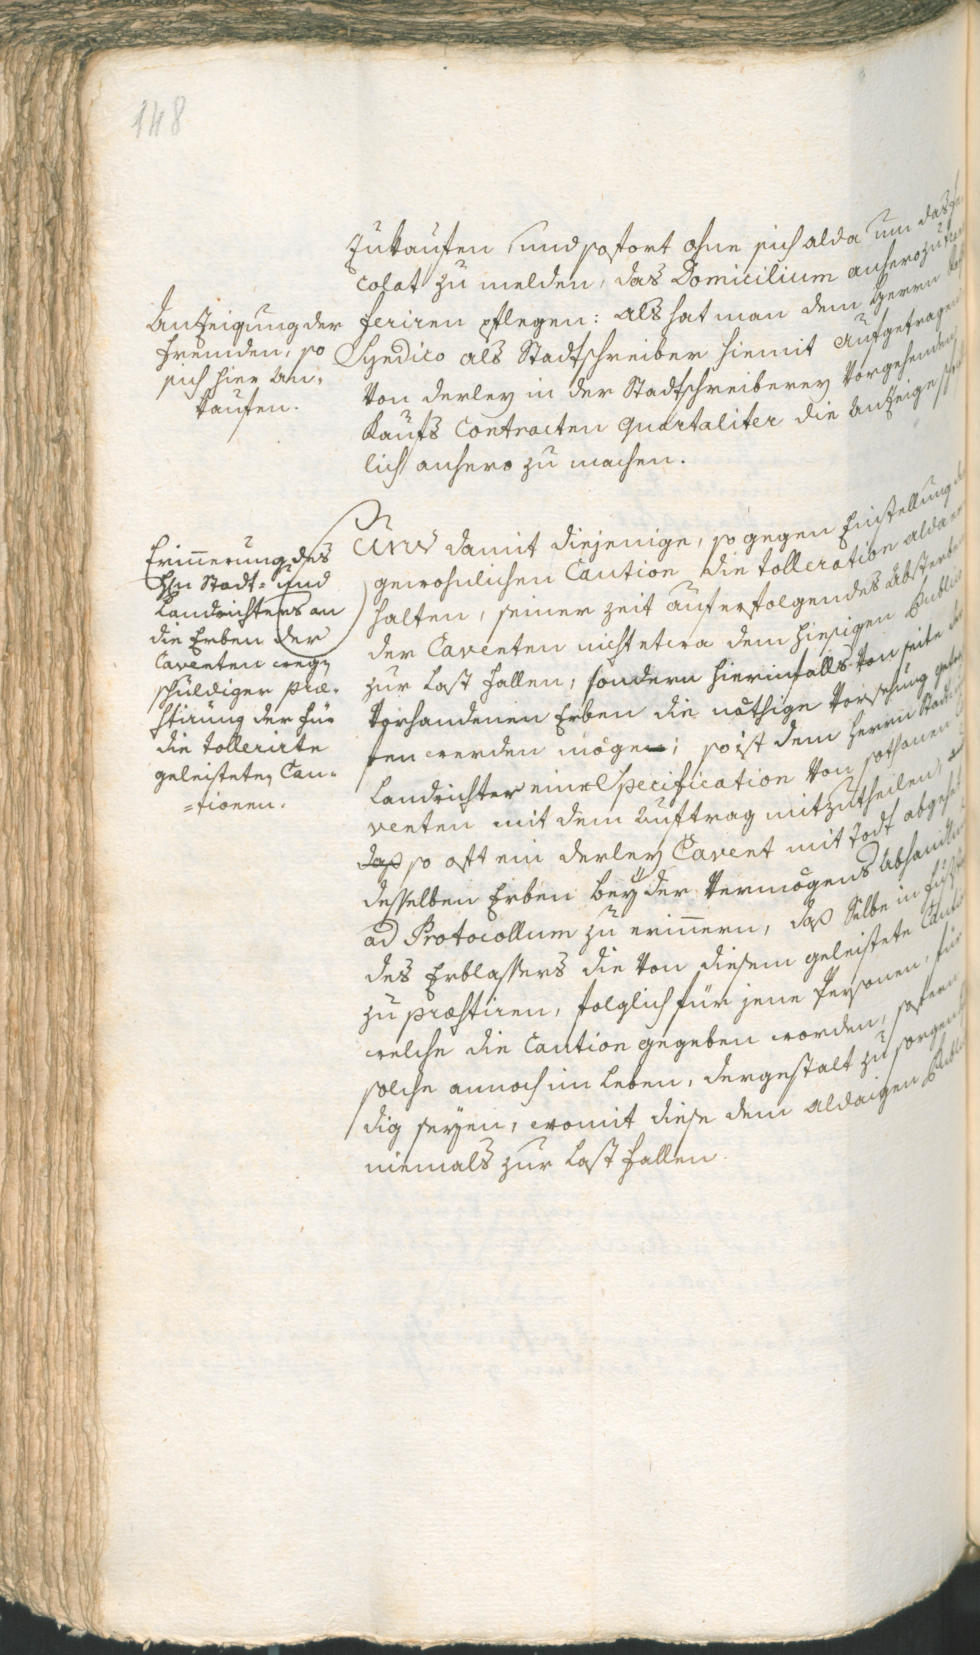 148
zukaufen, und sofort ohne sich alda um das
colat zu melden, das Domicilium anhero zu
feriren pflegen: als hat man dem Herrn
Syndico als Stadtschreiber hiemit aufgetragen
von derley in der Stadtschreiberey vorgehenden
Kaufs Contracten quartaliter die Anzeige
lich anhero zu machen.
Anzeigung der
Fremden, so
sich hier an-
kaufen.
Und damit diejenige, so gegen Einstellung
gewohnlichen Caution die tolleration alda
halten, seiner zeit auf erfolgendes Absterben
der Caventen nicht etwa dem hiesigen Publico
zur Last fallen, sondern hierinfalls von seite
vorhandenen Erben die nöthige Vorsehung
fen werden möge; so ist dem Herrn Stadt
Landrichter eine Specification von sothanen
venten mit dem Auftrag mitzutheilen,
daß so oft ein derley Cavent mit Todt abgehet
desselben Erben bey der Vermögens Abhandlung
ad Protocollum zu erinnern, daß Selbe in
des Erblassers die von diesem geleistete Caution
zu præstiren, folglich für jene Personen, für
welche die Caution gegeben worden, sofern
solche annoch im Leben, dergestalt zu sorgen
dig seyen, womit diese dem aldaigen
niemals zur Last fallen.
Erinnerung des
Hrn Stadt- und
Landrichters an
die Erben der
Caventen weg
schuldiger præ-
stirung der für
die tollerirte
geleisteten Cau-
=tionen.